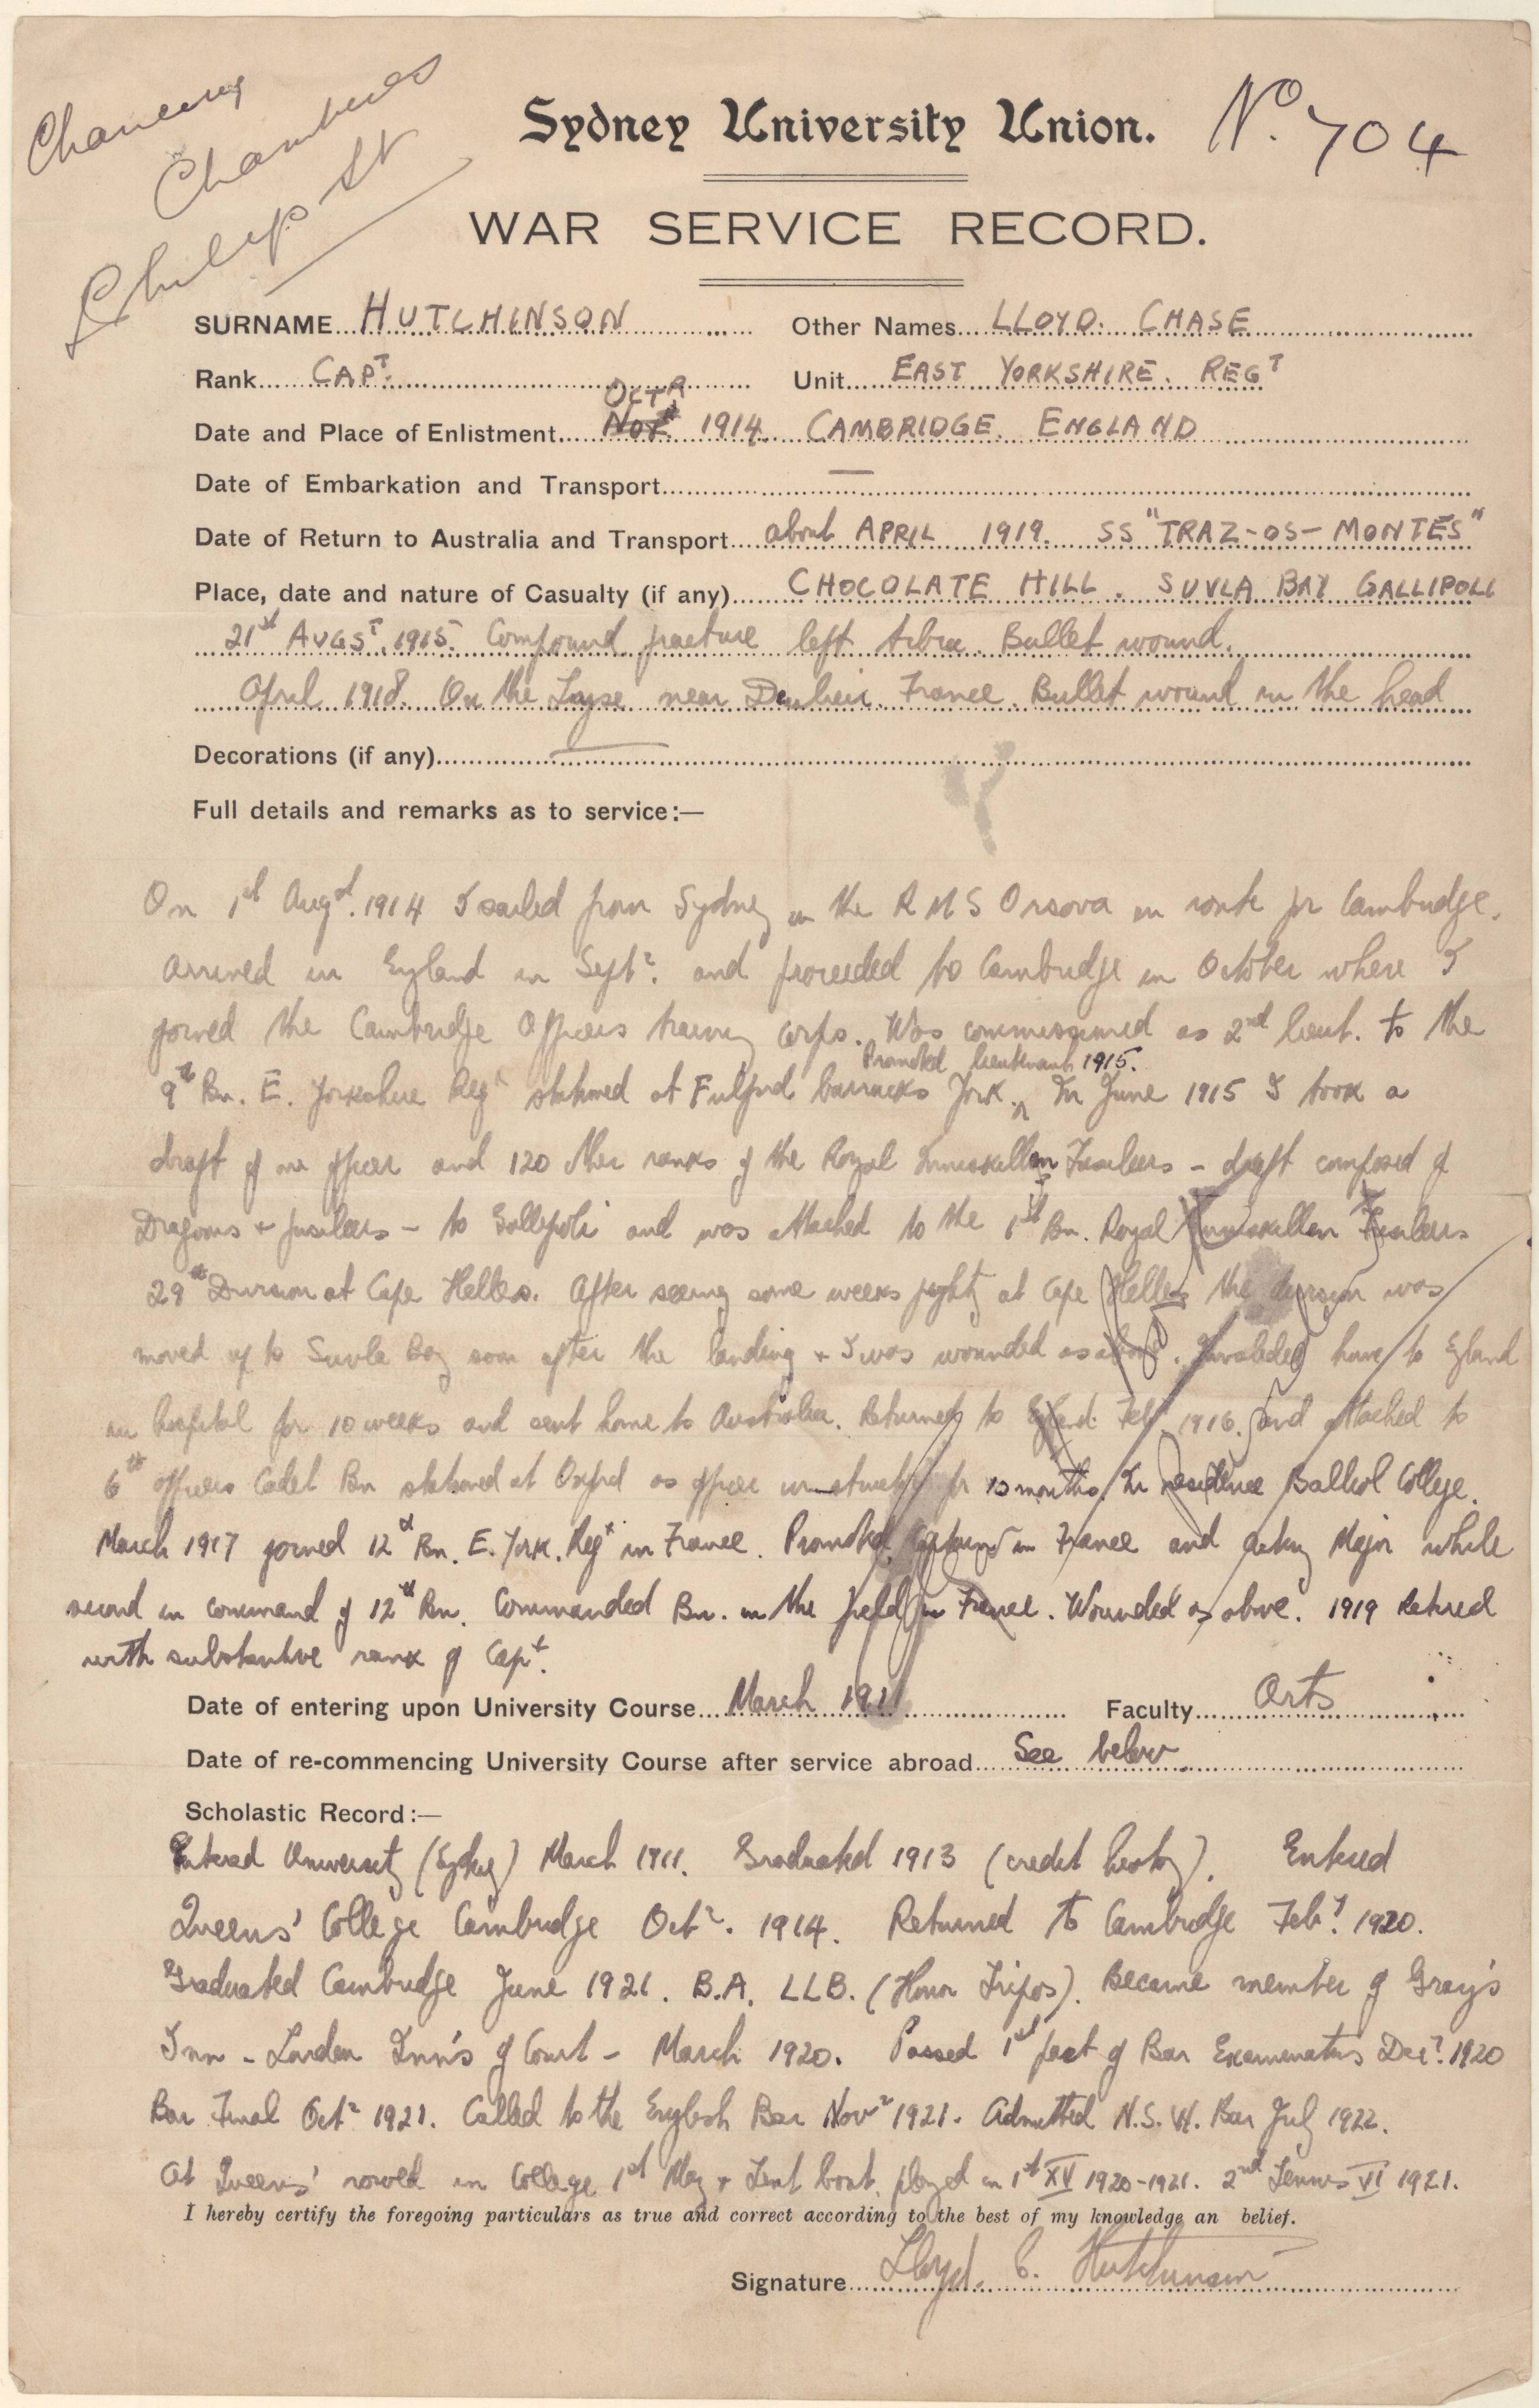 Chancery
Chambers
Philip St
Sydney University Union.
No. 704
WAR SERVICE RECORD.
SURNAME HUTCHINSON Other Names LLOYD. CHASE
Rank CAPT. Unit EAST YORKSHIRE. REGT
OCTR
Date and Place of Enlistment Novr 1914 CAMBRIDGE. ENGLAND
Date of Embarkation and Transport —
Date of Return to Australia and Transport about APRIL 1919. SS "TRAZ-OS-MONTES"
Place, date and nature of Casualty (if any) CHOCOLATE HILL. SUVLA BAY GALLIPOLI
21st AUGST. 1915. Compound fracture left tibia. Bullet wound.
April 1918. On the near France. Bullet wound in the head
Decorations (if any) —
Full details and remarks as to service:—
On 1st Augst. 1914 I sailed from Sydney in the R M S Orsova en route for Cambridge.
Arrived in England in Septr. and proceeded to Cambridge in October where I
joined the Cambridge Officers training corps. Was commissioned as 2nd Lieut. to the
Promoted lieutenant 1915.
9th Bn. E. Yorkshire Regt stationed at Fulford barracks York. In June 1915 I took a
draft of one officer and 120 other ranks of the Royal Inniskillen Fusiliers - draft composed of
Dragoons + fusiliers - to Gallipoli and was attached to the 1st Bn. Royal Inniskillen Fusiliers
29th Division at Cape Helles. After seeing some weeks fighting at Cape Helles the division was
moved up to Suvla Bay soon after the landing + I was wounded as above. Invalided home to England
in hospital for 10 weeks and sent home to Australia. Returned to England Feby. 1916. and attached to
6th Officers Cadet Bn stationed at Oxford as officer instructor for 10 months. In residence Balliol College.
March 1917 joined 12th Bn. E. York. Regt in France. Promoted Captain in France and acting Major while
second in command of 12th Bn. Commanded Bn. in the field in France. Wounded as above. 1919 Retired
with substantive rank of Capt.
Date of entering upon University Course March 1911 Faculty Arts
Date of re-commencing University Course after service abroad See below.
Scholastic Record:—
Entered University (Sydney) March 1911. Graduated 1913 (credit history). Entered
Queens' College Cambridge Octr. 1914. Returned to Cambridge Feby. 1920.
Graduated Cambridge June 1921. B.A. LLB. (Honor Tripos). Became member of Gray's
Inn - London Inn's of Court - March 1920. Passed 1st part of Bar Examinations Decr. 1920
Bar Final Octr 1921. Called to the English Bar Novr 1921. Admitted N.S.W. Bar July 1922.
At Queens' rowed in College 1st May + Lent boat, played in 1st XV 1920-1921. 2nd Tennis VI 1921.
I hereby certify the foregoing particulars as true and correct according to the best of my knowledge an belief.
Signature Lloyd. C. Hutchinson